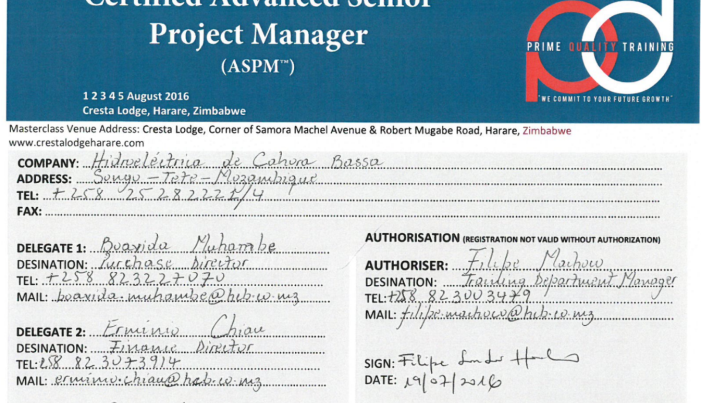 Certified Advanced Senior
Project Manager
(ASPM™)
PRIME QUALITY TRAINING
"WE COMMIT TO YOUR FUTURE GROWTH"
1 2 3 4 5 August 2016
Cresta Lodge, Harare, Zimbabwe
Masterclass Venue Address: Cresta Lodge, Corner of Samora Machel Avenue & Robert Mugabe Road, Harare, Zimbabwe
www.crestalodgeharare.com
COMPANY: Hidroeléctrica de Cahora Bassa
ADDRESS: Songo - Tete - Mozambique
TEL: +258 25282221/4
FAX:
DELEGATE 1: Boavida Muhambe
DESINATION: Purchase Director
TEL: +258 823227070
MAIL: boavida.muhambe@hcb.co.mz
DELEGATE 2: Erminio Chiau
DESINATION: Finance Director
TEL: 258 823073914
MAIL: erminio.chiau@hcb.co.mz
AUTHORISATION (REGISTRATION NOT VALID WITHOUT AUTHORIZATION)
AUTHORISER: Filipe Machoco
DESINATION: Training Department Manager
TEL: +258 823003479
MAIL: filipe.machoco@hcb.co.mz
SIGN: Filipe
DATE: 19/07/2016